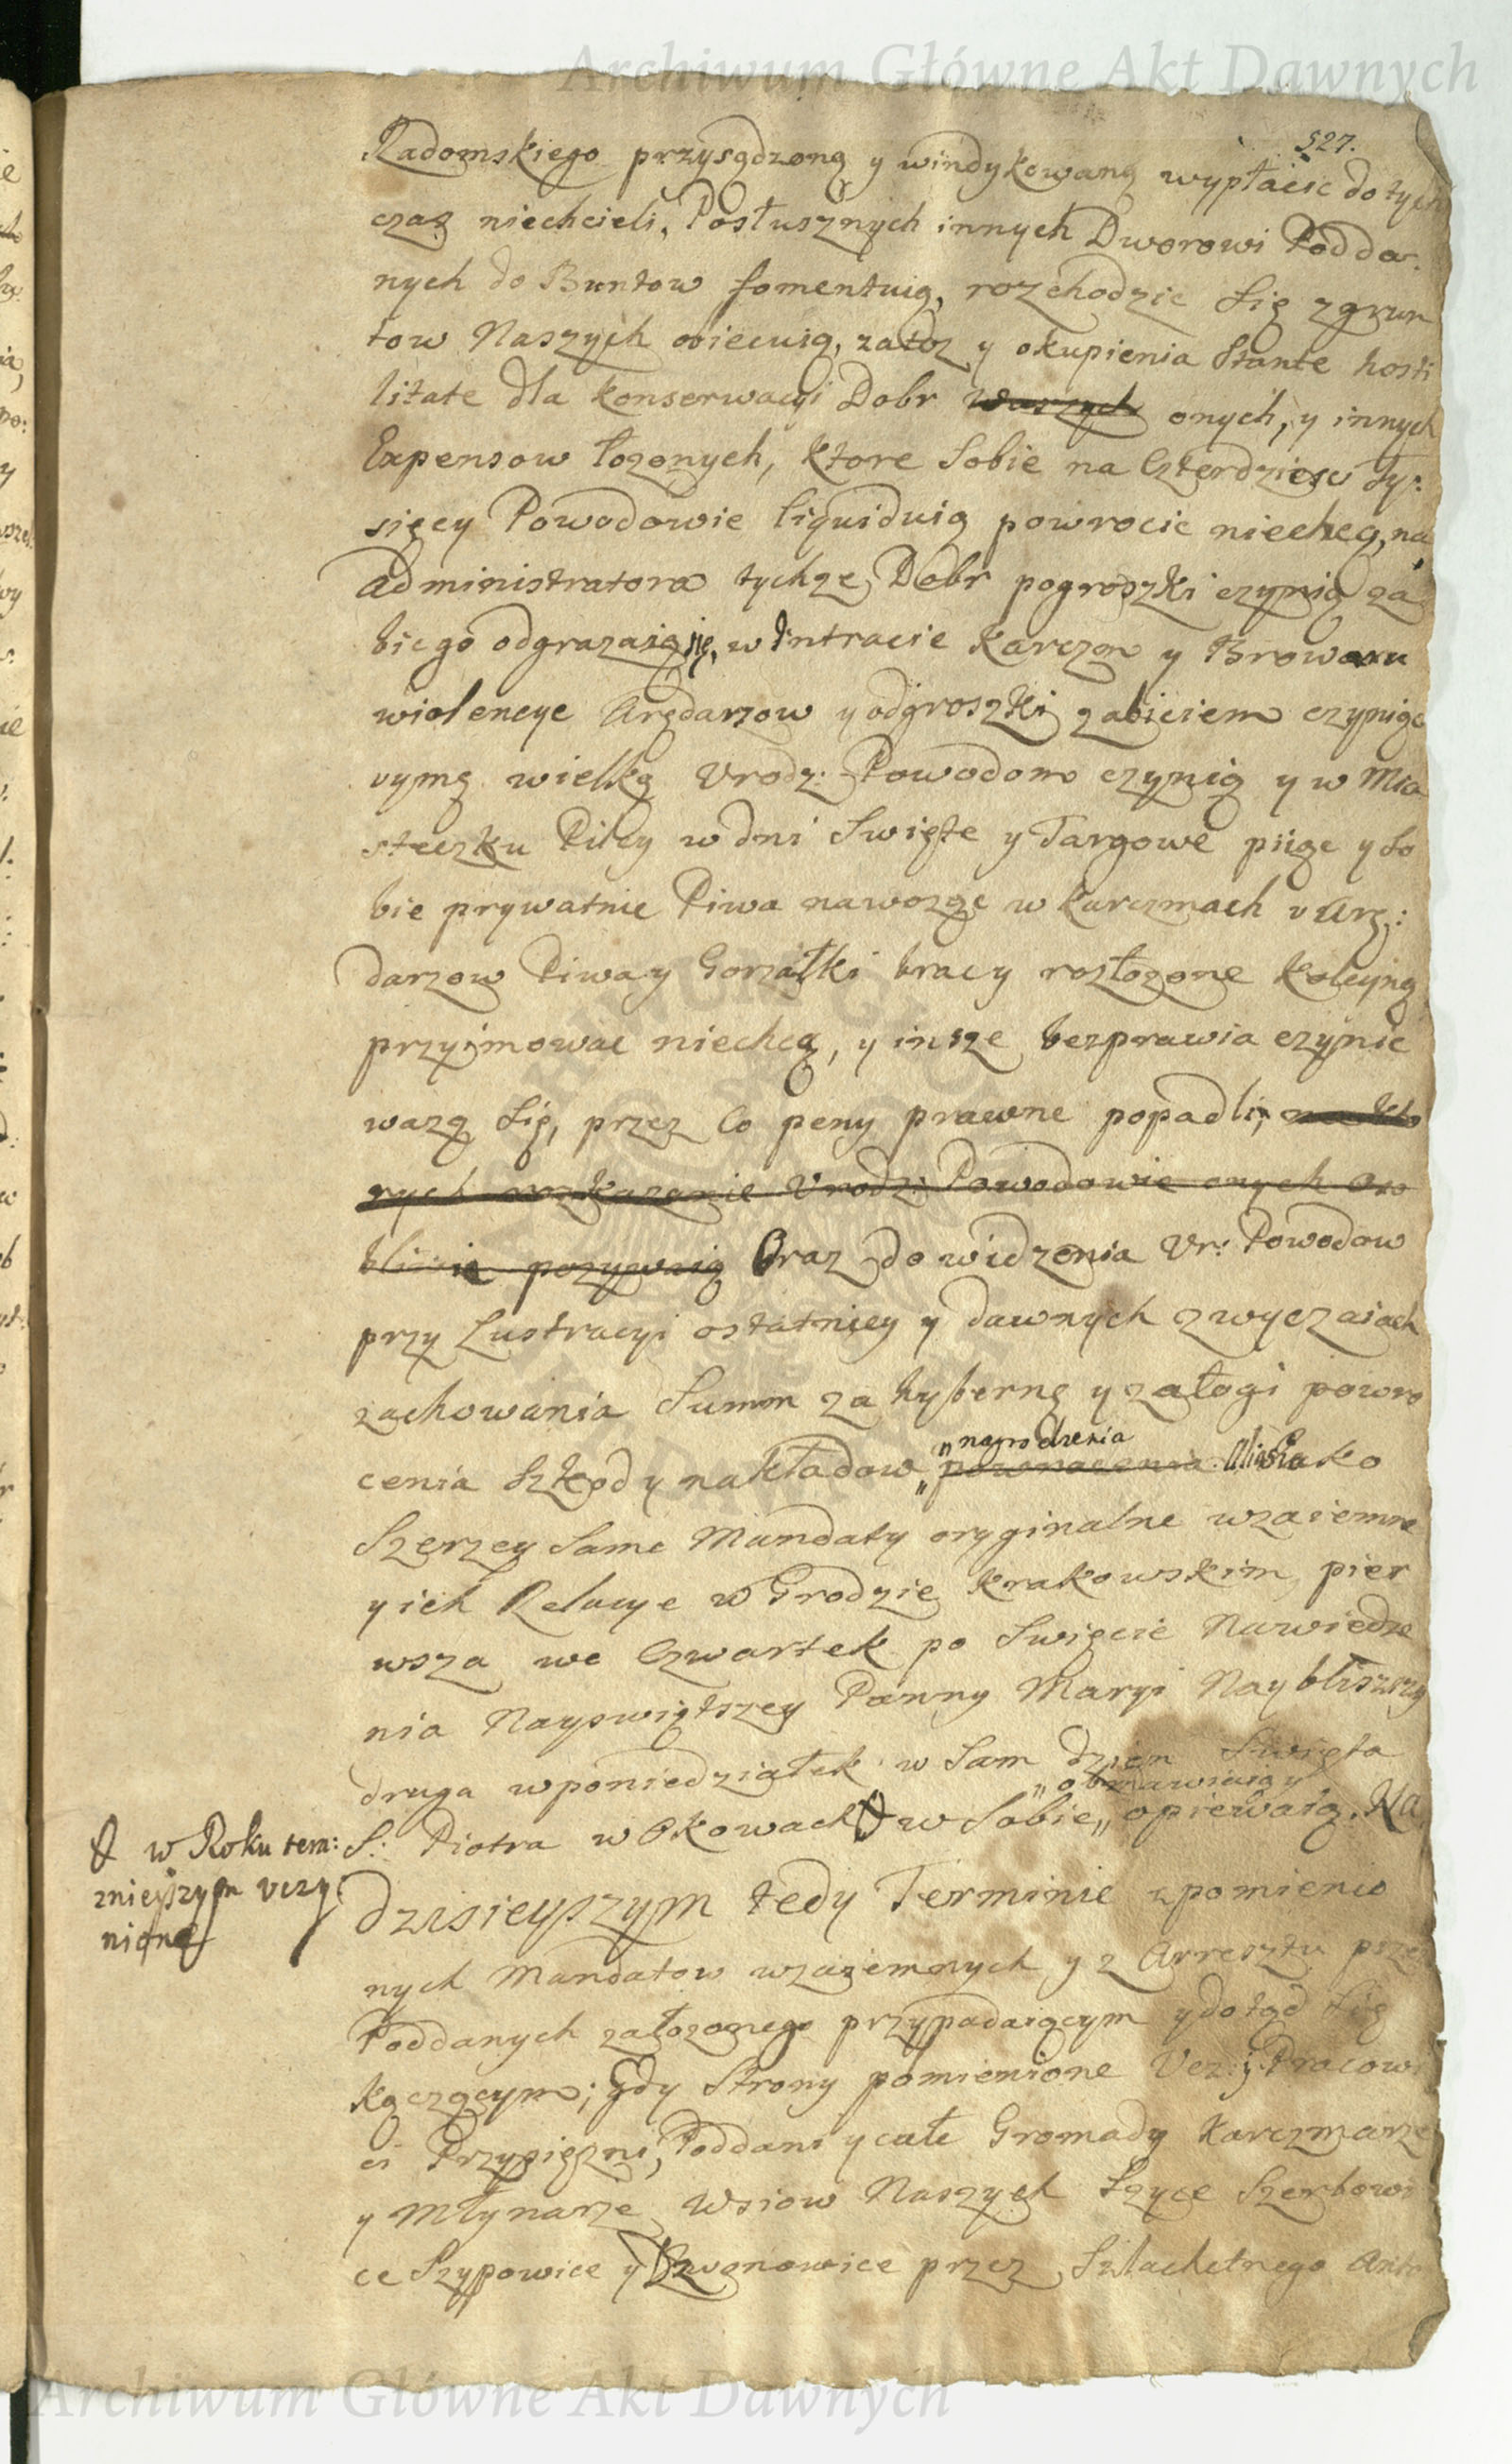 Archiwum Główne Akt Dawnych
527.
Radomskiego przysądzoną y windykowaną wypłacic do tych
czas niechcieli, Posłusznych innych Dworowi Podda-
nych do Buntow fomentuią, rozchodzic się z grun
tow Naszych obiecuią, załoz y okupienia Stante hosti
litate dla konserwacyi Dobr Waszych onych, y innych
Expensow łozonych, ktore Sobie na Czterdziesci Ty-
sięcy Powodowie liquiduią powrocic niechcą, na
administratora tychze Dobr pogroszki czynią za
bic go odgrazaią się, w Intracie Karczm y Browaru
wiolencye Arędarzow y odgroszki zabiciem czyniąc
uymę wielką Urodz: Powodom czynią y w Mia
steczku Pilcy w dni Swięte y Targowe piiąc y so
bie prywatnie Piwa nawoząc w karczmach u Arę:
darzow Piwa y Gorzałki bracy rozłozone koleyną
przyimowac niechcą, y insze bezprawia czynic
wazą się, przez Co peny prawne popadli, na kto
rych wskazanie Urodz: Powodowie onych
pozywaią Oraz do widzenia Ur: Powodow
przy Lustracyi ostatniey y dawnych zwyczaiach
zachowania Summ za hybernę y załogi powro
cenia Szkod y nakładow „ nagrodzenia
powrocenia Iako
Szerzey Same Mandaty oryginalne wzaiemne
y ich Relacye w Grodzie Krakowskim, pier
wsza we Czwartek po Swięcie Nawiedze
nia Nayswiętszey Panny Maryi Naybliszszy
druga w poniedziałek w Sam dzien Swięta
„ obmawiaią y
S: Piotra w Okowach w Sobie „ opiewaią. Na
w Roku tera:
znieyszym uczy
nione
dzisieyszym tedy Terminie z pomienio
nych Mandatow wzaiemnych y z Arresztu przez
Poddanych załozonego przypadaiącym y dotąd się
kączącym; Gdy Strony pomienione Ucz: y Pracowi
ci Przysięzni, Poddani y całe Gromady Karczmarze
y Młynarze Wsiow Naszych Szyce Szerkowi
ce Szypowice y Dzwonowice przez Szlachetnego Anto
Archiwum Główne Akt Dawnych